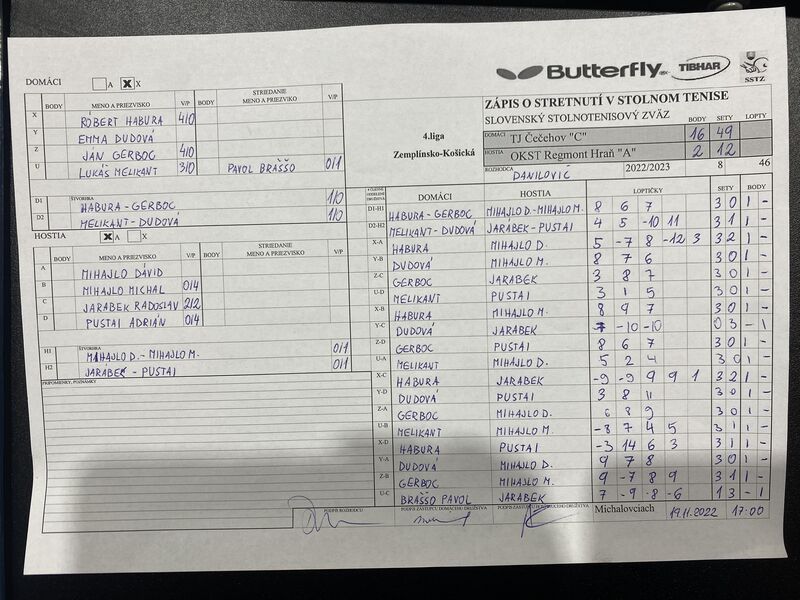 Butterfly TIBHAR SSTZ
DOMÁCI A X X
BODY MENO A PRIEZVISKO V/P BODY STRIEDANIE MENO A PRIEZVIKO V/P
X RÓBERT HABURA 4/0
Y EMMA DUDOVÁ
Z JÁN GERBOC 4/0
U LUKÁŠ MELIKANT 3/0 PAVOL BRAŠŠO 0/1
ŠTVORHRA
D1 HABURA - GERBOC 1/0
D2 MELIKANT - DUDOVÁ 1/0
HOSTIA X A X
BODY MENO A PRIEZVISKO V/P BODY STRIEDANIE MENO A PRIEZVISKO V/P
A MIHAJLO DÁVID
B MIHAJLO MICHAL 0/4
C JARABEK RADOSLAV 2/2
D PUSTAI ADRIÁN 0/4
ŠTVORHRA
H1 MIHAJLO D. - MIHAJLO M. 0/1
H2 JARABEK - PUSTAI 0/1
PRIPOMIENKY, POZNÁMKY
4.liga
Zemplínsko-Košická
ZÁPIS O STRETNUTÍ V STOLNOM TENISE
SLOVENSKÝ STOLNOTENISOVÝ ZVÄZ BODY SETY LOPTY
DOMÁCI TJ Čečehov "C" 16 49
HOSTIA OKST Regmont Hraň "A" 2 12
ROZHODCA DANILOVIČ 2022/2023 8 46
DOMÁCI HOSTIA LOPTIČKY SETY BODY
D1-H1 HABURA - GERBOC MIHAJLO D. - MIHAJLO M. 8 6 7 3 0 1 -
D2-H2 MELIKANT - DUDOVÁ JARABEK - PUSTAI 4 5 -10 11 3 1 1 -
X-A HABURA MIHAJLO D. 5 -7 8 -12 3 3 2 1 -
Y-B DUDOVÁ MIHAJLO M. 8 7 6 3 0 1 -
Z-C GERBOC JARABEK 3 8 7 3 0 1 -
U-D MELIKANT PUSTAI 3 1 5 3 0 1 -
X-B HABURA MIHAJLO M. 8 9 7 3 0 1 -
Y-C DUDOVÁ JARABEK -7 -10 -10 0 3 - 1
Z-D GERBOC PUSTAI 8 6 7 3 0 1 -
U-A MELIKANT MIHAJLO D. 5 2 4 3 0 1 -
X-C HABURA JARABEK -9 -9 9 9 1 3 2 1 -
Y-D DUDOVÁ PUSTAI 3 8 11 3 0 1 -
Z-A GERBOC MIHAJLO D. 6 8 9 3 0 1 -
U-B MELIKANT MIHAJLO M. -8 7 4 5 3 1 1 -
X-D HABURA PUSTAI -3 14 6 3 3 1 1 -
Y-A DUDOVÁ MIHAJLO D. 9 7 8 3 0 1 -
Z-B GERBOC MIHAJLO M. 9 -7 8 9 3 1 1 -
U-C BRAŠŠO PAVOL JARABEK 7 -9 -8 -6 1 3 - 1
PODPIS ROZHODCU PODPIS ZÁSTUPCU DOMÁCEHO DRUŽSTVA Michalovciach 19.11.2022 17:00